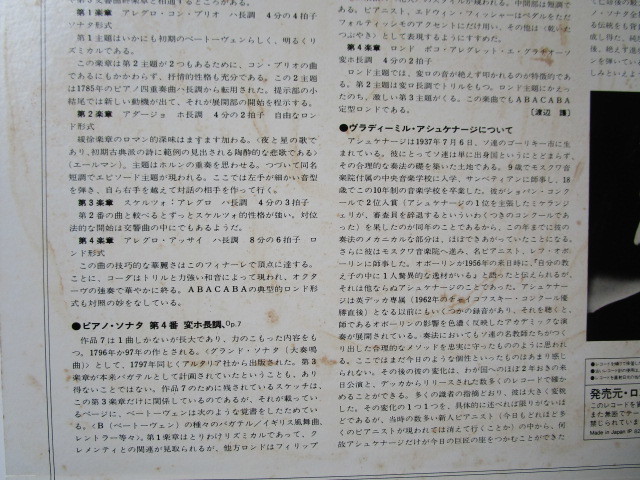 第1楽章 アレグロ・コン・ブリオ ハ長調 4分の4拍子
ソナタ形式
第1主題はいかにも初期のベートーヴェンらしく、明るくリ
ズミカルである。
この楽章は第2主題が2つもあるために、コン・ブリオの曲
であるにもかかわらず、抒情的性格も充分である。この2主題
は1785年のピアノ四重奏曲ハ長調から転用された。提示部の小
結尾では新しい動機が出て、それが展開部の開始を程示する。
第2楽章 アダージョ ホ長調 4分の2拍子 自由なロン
ド形式
緩徐楽章のロマン的深味はますます加わる。〈夜と星の歌で
あり、初期古典派の詩に範例の見出される陶酔的な悲歌である〉
(エールマン)。主題はホルンの重奏を思わせる。つづいて同名
短調でエピソード主題が現われる。ここでは左手が細かい音型
を弾き、自ら右手を越えて対話の相手を作って行く。
第3楽章 スケルツォ:アレグロ ハ長調 4分の3拍子
第2番の曲と較べるとずっとスケルツォ的性格が強い。対位
法的な開始は交響曲の中にでもあるようだ。
第4楽章 アレグロ・アッサイ ハ長調 8分の6拍子 ロ
ンド形式
この曲の技巧的な華麗さはこのフィナーレで頂点に達する。
ことに、コーダはトリルと力強い和音によって現われ、オクター
ヴの独奏で華やかに終る。ABACABAの典型的ロンド形
式も対照の妙をなしている。
●ピアノ・ソナタ 第4番 変ホ長調、Op.7
作品7は1曲しかないが長大であり、力のこもった内容をも
つ。1796年から97年の作とされる。〈グランド・ソナタ(大奏鳴
曲)〉として、1797年同じくアルタリア社から出版された。第3
楽章が本来バガテルとして計画されていたということも、あり
得ないことではない。作品7のために残されているスケッチは、
この第3楽章だけに関係しているのであるが、それが載ってい
るページに、ベートーヴェンは次のような覚書をしたためてい
る。〈B(ベートーヴェン)の種々のバガテル/イギリス風舞曲、
レントラー等々〉。第1楽章はとりわけリズミカルであって、ク
レメンティとの関連が見取られるが、他方ロンドはフィリップ
る。ピアニスト、エドウィン・フィッシャーはペダルをただ
フォルティッシモのアクセントにだけ用い、その他は〈乾いた
つぶやき〉として表現するようにすすめた。
第4楽章 ロンド ポコ・アレグレット・エ・グラチオーソ
変ホ長調 4分の2拍子
ロンド主題では、変ロの音が絶えず叩かれるのが特徴的であ
る。第2主題は変ロ長調でトリルをもつ。ロンド主題にかえっ
たのち、激しい第3主題がくる。この楽曲でもABACABA
定型ロンドである。 〔渡辺 護〕
●ヴラディーミル・アシュケナージについて
アシュケナージは1937年7月6日、ソ連のゴーリキー市に生
まれている。彼にとってソ連は単に出身国というにとどまらず、
その合理的な奏法の礎を築いた土地である。9歳でモスクワ音
楽院付属の中央音楽学校に入学、サンベティアンに師事し、18
歳でこの10年制の音楽学校を卒業した。彼がショパン・コンク
ールで2位入賞(アシュケナージの1位を主張したミケランジ
ェリが、審査員を辞退するといういわくつきのコンクールであ
った)を果したのが同年のことであるから、この年までに彼の
奏法のメカニカルな部分は、ほぼできあがっていたことになる。
さらに彼はモスクワ音楽院へ進み、名ピアニスト、レフ・オボ
ーリンに師事した。オボーリンが1956年の来日時に、「自分の教
え子の中に1人驚異的な逸材がいる」と語ったと伝えられるが、
それは他ならぬアシュケナージのことであった。アシュケナー
ジは英デッカ専属(1962年のチャイコフスキー・コンクール優
勝直後)となる以前にもいくつかの録音があり、それを聴くと、
師であるオボーリンの影響を色濃く反映したアカデミックな演
奏が展開されている。奏法においてもソ連の名教師たちがつく
り出した合理的なメソッドを忠実に守ったもののように思われ
る。ここではまだ今日のような個性といったものはあまり感じ
られない。その後の彼の変化は、わが国へのほぼ2年おきの来
日公演と、デッカからリリースされた数多くのレコードで確か
めることができる。多くの識者の指摘どおり、彼は大きく変貌
した。その変化の1つ1つを、具体的に述べれば限りがないほ
どであるが、当時の数多い新人ピアニスト(今日もどれほど多
くのピアニストが現われては消えて行くことか)の中から、何
故アシュケナージだけが今日の巨匠の座をつかむことができた
発売元・ロ
このレコードを
Made in Japan